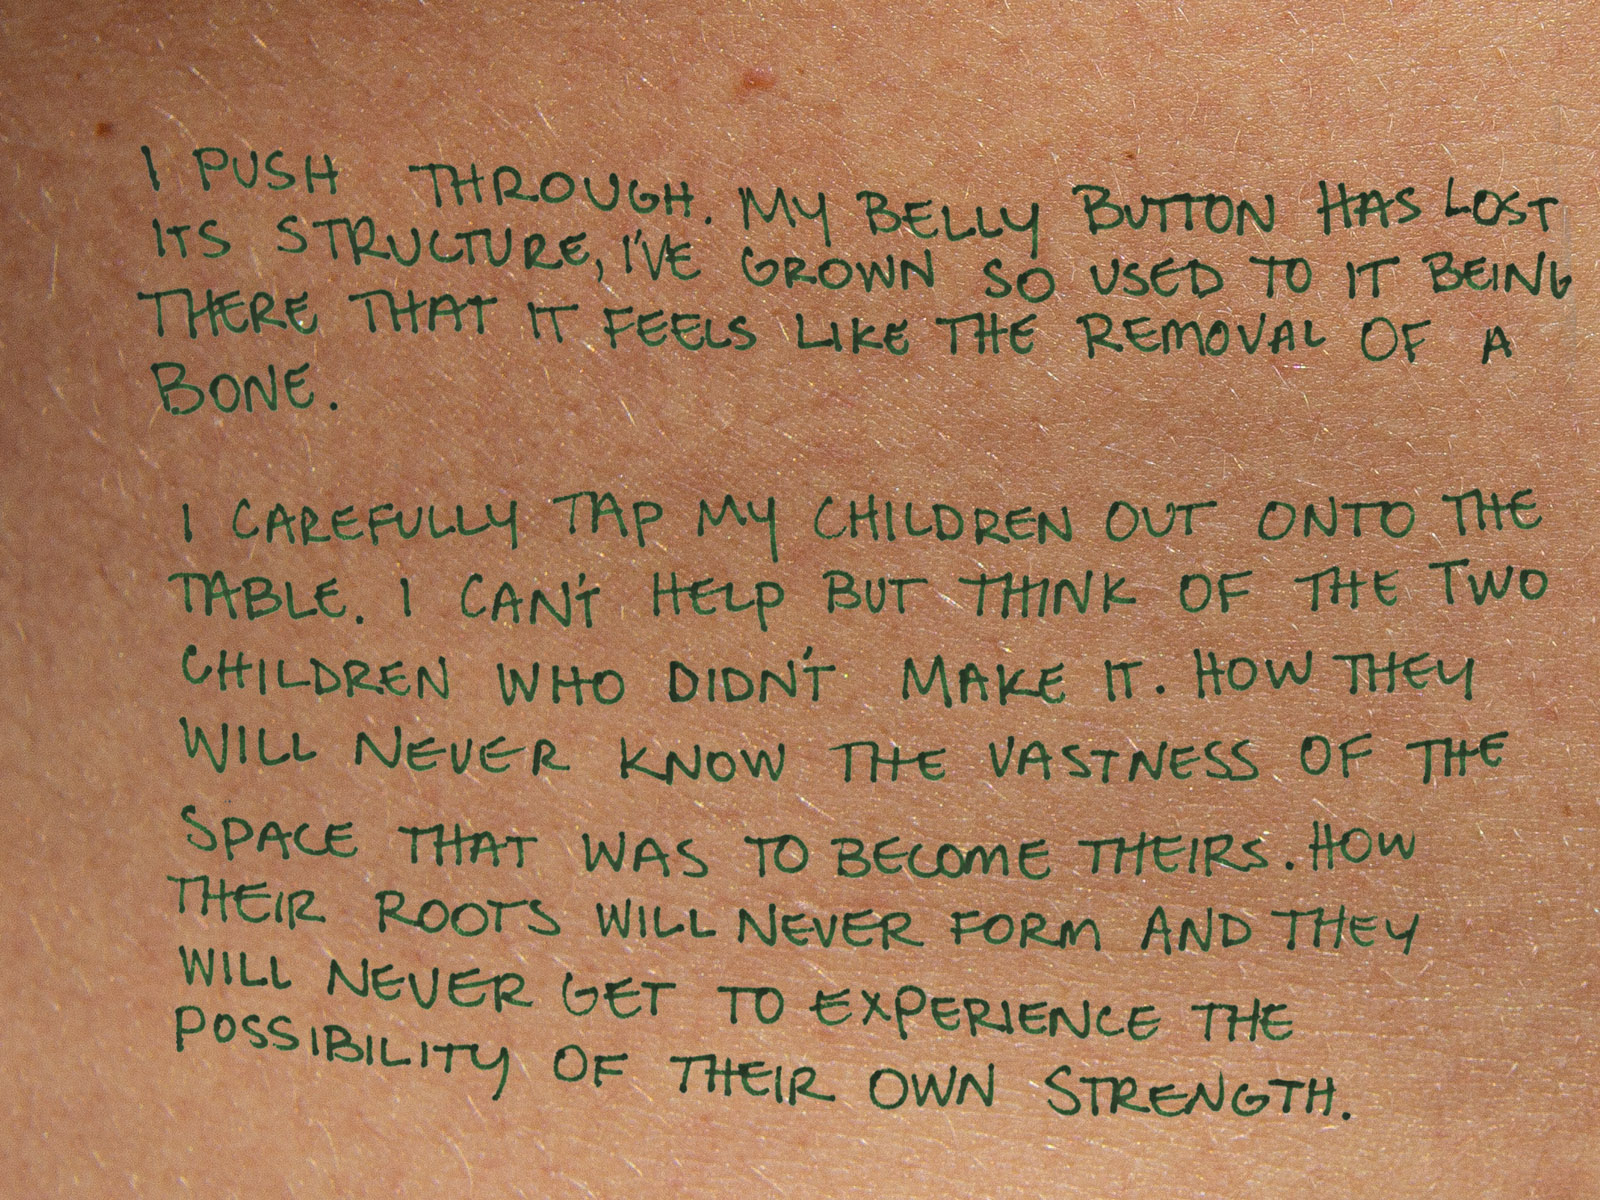 I PUSH THROUGH. MY BELLY BUTTON HAS LOST
ITS STRUCTURE, I'VE GROWN SO USED TO IT BEING
THERE THAT IT FEELS LIKE THE REMOVAL OF A
BONE.
I CAREFULLY TAP MY CHILDREN OUT ONTO THE
TABLE. I CAN'T HELP BUT THINK OF THE TWO
CHILDREN WHO DIDN'T MAKE IT. HOW THEY
WILL NEVER KNOW THE VASTNESS OF THE
SPACE THAT WAS TO BECOME THEIRS. HOW
THEIR ROOTS WILL NEVER FORM AND THEY
WILL NEVER GET TO EXPERIENCE THE
POSSIBILITY OF THEIR OWN STRENGTH.